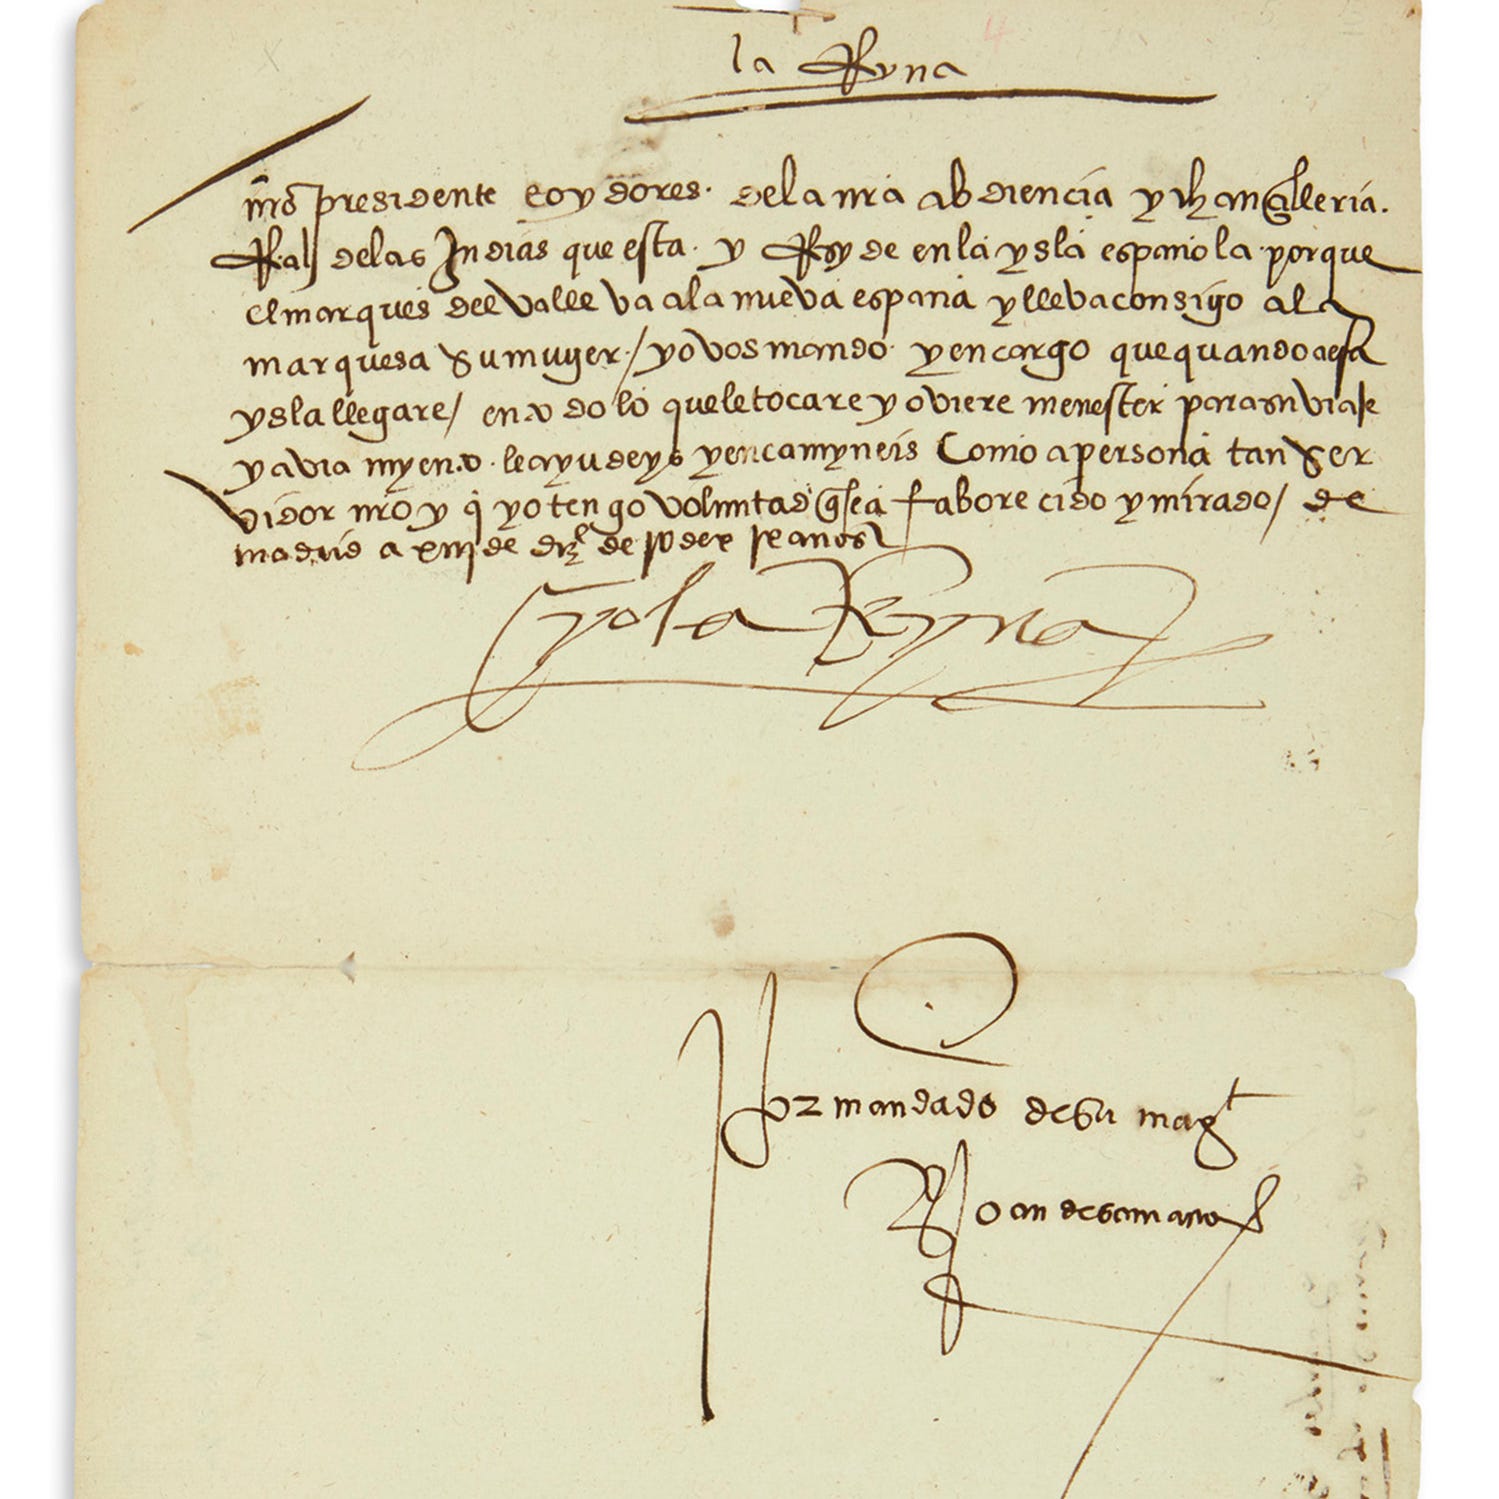 la Reyna
nro presidente e oydores. dela nra abdiencia y chancilleria.
Real delas Indias que esta. y Resyde en la ysla española. porque
el marques del valle va ala nueva españa y lleva consigo ala
marquesa su muger./ yo vos mando. y encargo que quando a esa
ysla llegare/ en todo lo que le tocare y oviere menester para su viaje
y aviamyento. le ayudeys y encamyneis Como a persona tan ser
vidor nro y q yo tengo voluntad q sea faborecido y mirado/ de
madrid a de de mill de xx ix años
yo la Reyna
Por mandado de su magt
Joan de samano